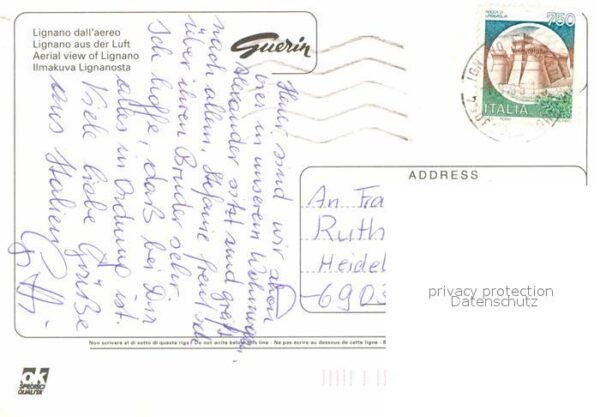 Lignano dall'aereo
Lignano aus der Luft
Aerial view of Lignano
Ilmakuva Lignanosta
Guerin
ROCCA DI
URBISAGLIA
750
ITALIA
Heuer sind wir schon
hier in unserem Wohnwagen.
Alexander sitzt und greift
nach allem, Stefanie freut sich
über ihren Bruder sehr.
Ich hoffe, daß bei Dir
alles in Ordnung ist.
Viele liebe Grüße
aus Italien
ADDRESS
An Fra
Ruth
Heidel
6903
privacy protection
Datenschutz
Non scrivere al di sotto di questa riga / Do not write below this line - Ne pas écrire au dessous de cette ligne - B
ok
SPEDISCI
QUALITA'